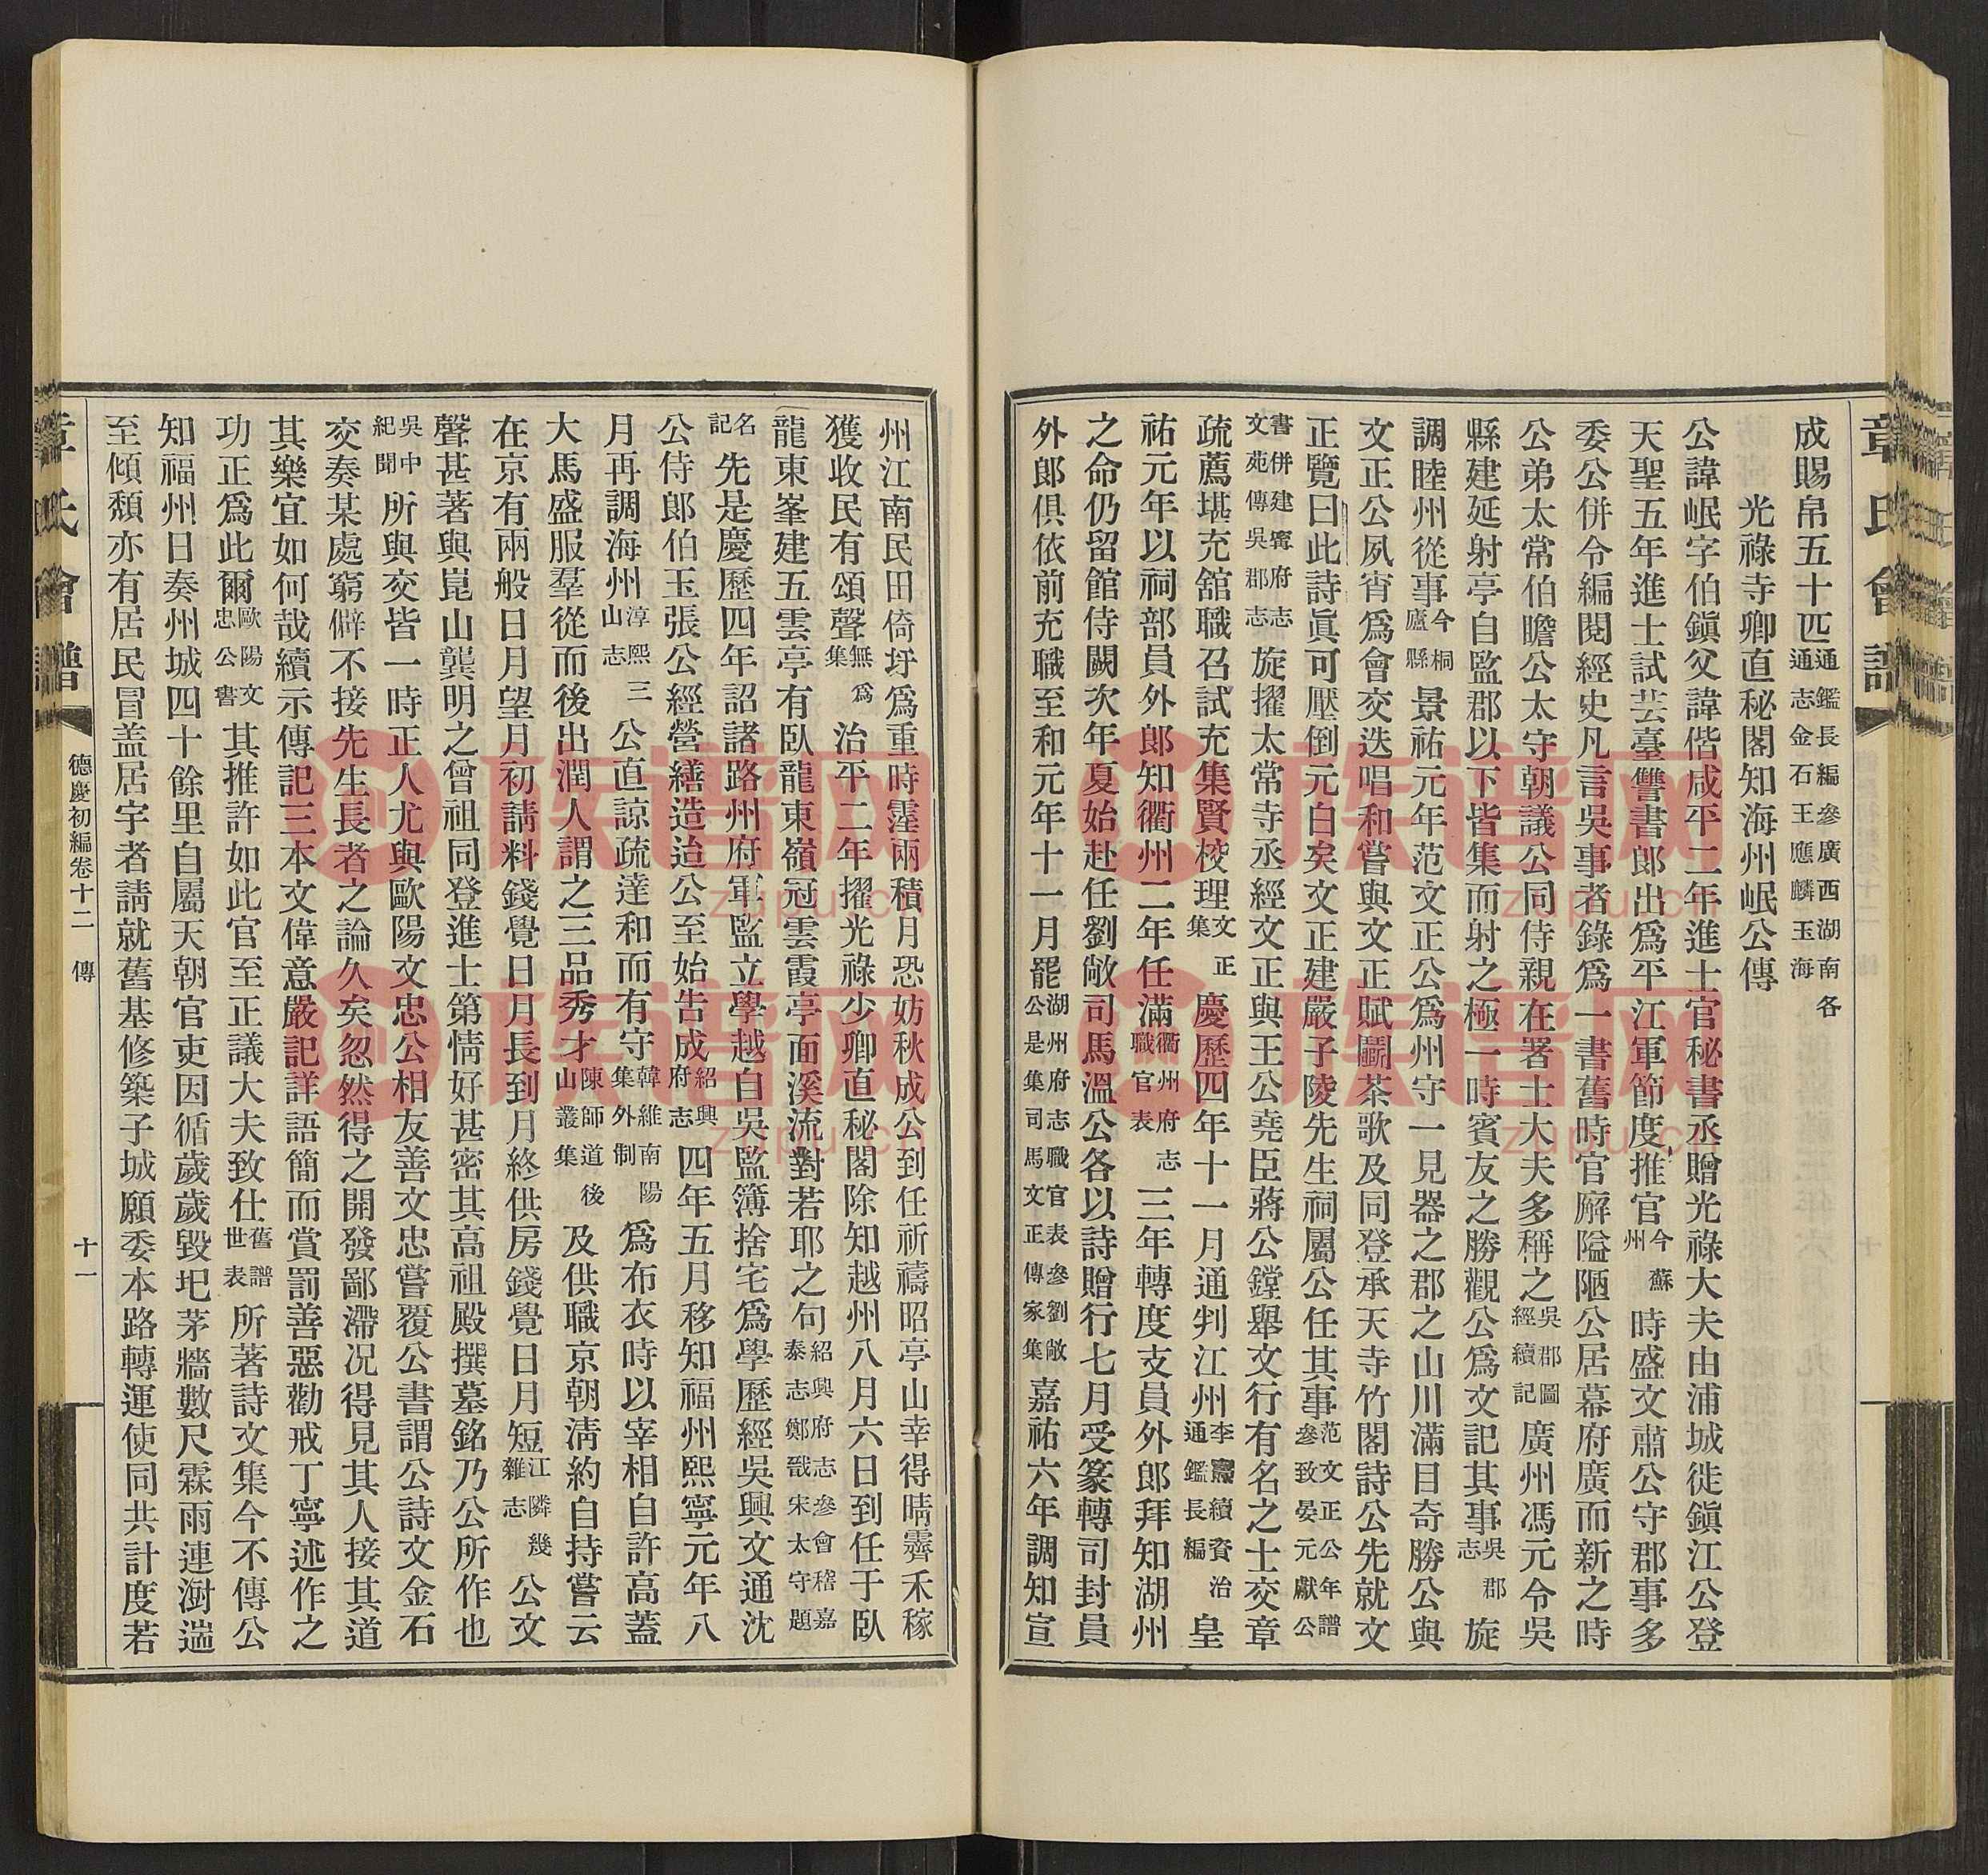 章氏會譜
成賜帛五十匹通鑑長編參廣西湖南各通志金石王應麟玉海
光祿寺卿直秘閣知海州岷公傳
公諱岷字伯鎭父諱偕咸平二年進士官秘書丞贈光祿大夫由浦城徙鎭江公登
天聖五年進士試芸臺讐書郎出爲平江軍節度推官今蘇州時盛文肅公守郡事多
委公併令編閱經史凡言吳事者錄爲一書舊時官廨隘陋公居幕府廣而新之時
公弟太常伯瞻公太守朝議公同侍親在署士大夫多稱之吳郡圖經續記廣州馮元令吳
縣建延射亭自監郡以下皆集而射之極一時賓友之勝觀公爲文記其事吳郡志旋
調睦州從事今桐廬縣景祐元年范文正公爲州守一見器之郡之山川滿目奇勝公與
文正公夙宵爲會交迭唱和嘗與文正賦鬭茶歌及同登承天寺竹閣詩公先就文
正覽曰此詩眞可壓倒元白矣文正建嚴子陵先生祠屬公任其事范文正公年譜參致晏元獻公
書併建寗府志文苑傳吳郡志旋擢太常寺丞經文正與王公堯臣蔣公鏜舉文行有名之士交章
疏薦堪充舘職召試充集賢校理文正集慶歷四年十一月通判江州李燾續資治通鑑長編皇
祐元年以祠部員外郎知衢州二年任滿衢州府志職官表三年轉度支員外郎拜知湖州
之命仍留館侍闕次年夏始赴任劉敞司馬溫公各以詩贈行七月受篆轉司封員
外郎俱依前充職至和元年十一月罷湖州府志職官表參劉敞公是集司馬文正傳家集嘉祐六年調知宣
州江南民田倚圩爲重時霪雨積月恐妨秋成公到任祈禱昭亭山幸得晴霽禾稼
獲收民有頌聲無爲集治平二年擢光祿少卿直秘閣除知越州八月六日到任于臥
龍東峯建五雲亭有臥龍東嶺冠雲霞亭面溪流對若耶之句紹興府志參會稽嘉泰志鄭戩宋太守題
名記先是慶歷四年詔諸路州府軍監立學越自吳監簿捨宅爲學歷經吳興文通沈
公侍郎伯玉張公經營繕造迨公至始告成紹興府志四年五月移知福州熙寧元年八
月再調海州淳熙三山志公直諒疏達和而有守韓維南陽集外制爲布衣時以宰相自許高蓋
大馬盛服羣從而後出潤人謂之三品秀才陳師道後山叢集及供職京朝淸約自持嘗云
在京有兩般日月望月初請料錢覺日月長到月終供房錢覺日月短江隣幾雜志公文
聲甚著與崑山龔明之曾祖同登進士第情好甚密其高祖殿撰墓銘乃公所作也
吳中紀聞所與交皆一時正人尤與歐陽文忠公相友善文忠嘗覆公書謂公詩文金石
交奏某處窮僻不接先生長者之論久矣忽然得之開發鄙滯況得見其人接其道
其樂宜如何哉續示傳記三本文偉意嚴記詳語簡而賞罰善惡勸戒丁寧述作之
功正爲此爾歐陽文忠公書其推許如此官至正議大夫致仕舊譜世表所著詩文集今不傳公
知福州日奏州城四十餘里自屬天朝官吏因循歲歲毀圯茅牆數尺霖雨連澍湍
至傾頹亦有居民冒盖居宇者請就舊基修築子城願委本路轉運使同共計度若
章氏會譜
德慶初編卷十二 傳
十一